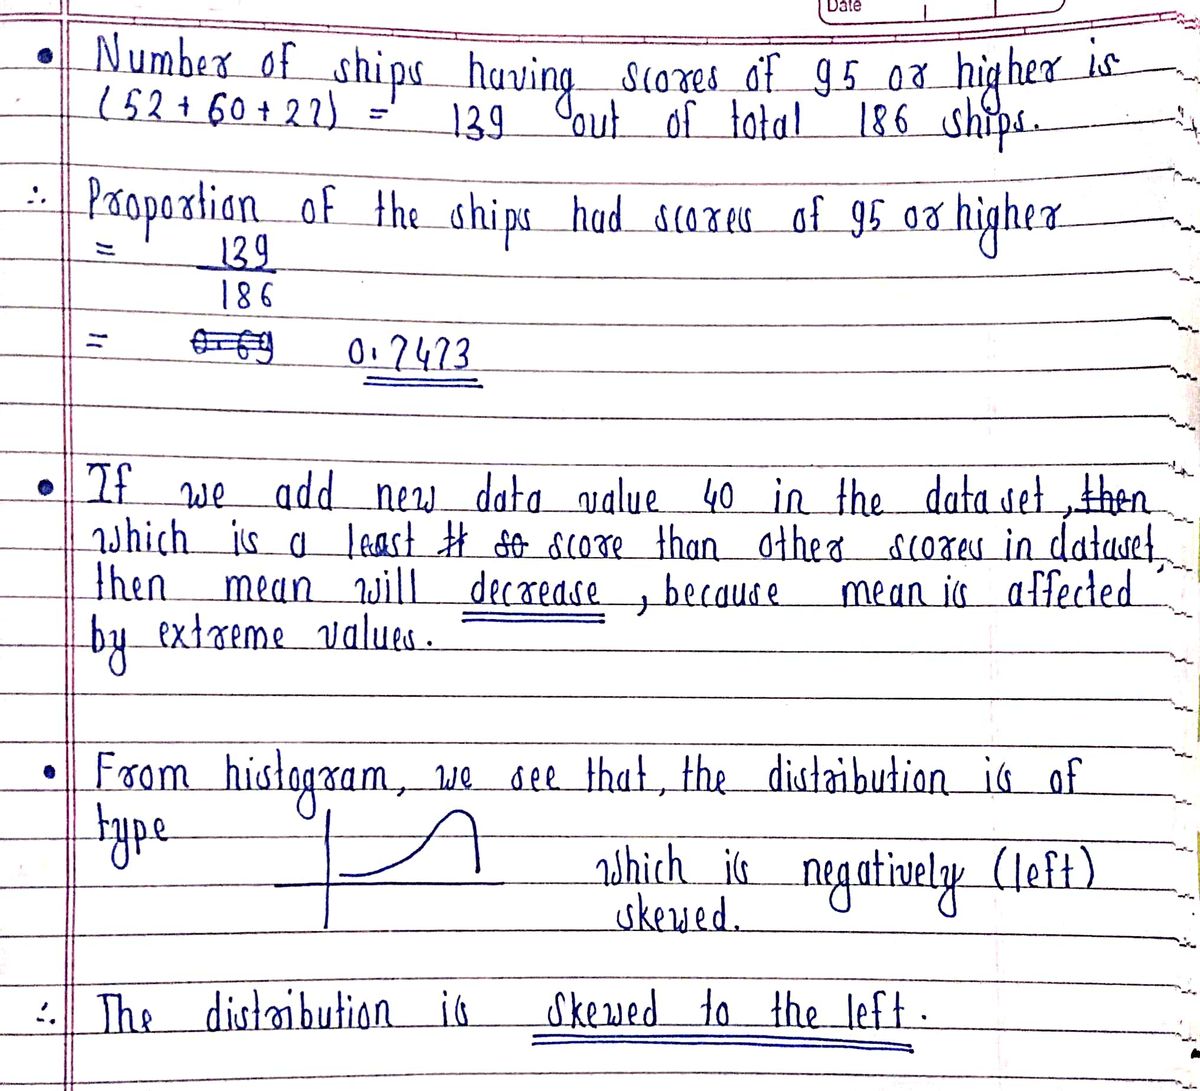 Date
• Number of ships having scores of 95 or higher is
(52 + 60 + 27) = 139 out of total 186 ships.
∴ Proportion of the ships had scores of 95 or higher
= 139
186
= 0.69 0.7473
• If we add new data value 40 in the data set, then
which is a least so score than other scores in dataset,
then mean will decrease, because mean is affected
by extreme values.
• From histogram, we see that, the distribution is of
type
which is negatively (left)
skewed.
∴ The distribution is skewed to the left.